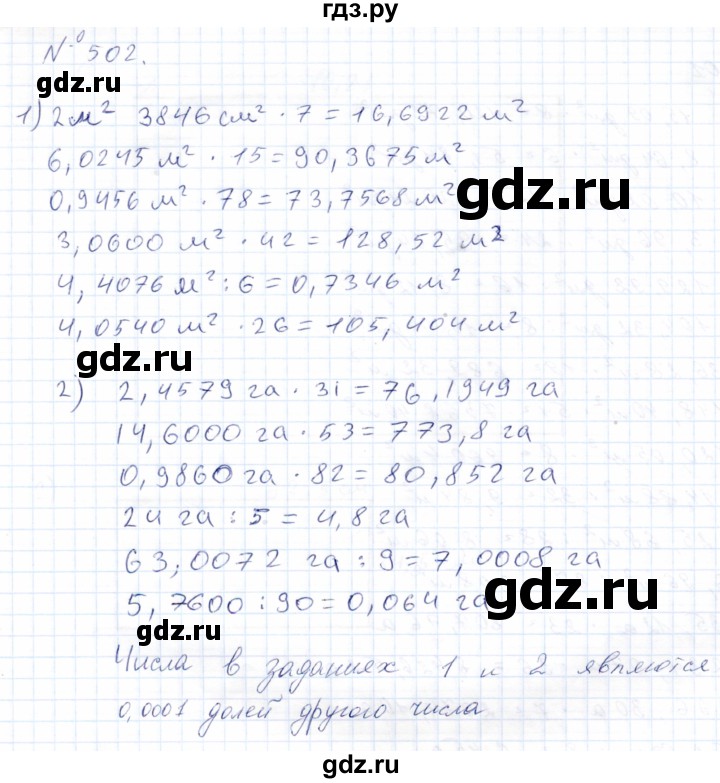 гдз.ру
№ 502.
gdz.ru
1) 2 м² 3846 см² · 7 = 16,6922 м²
6,0245 м² · 15 = 90,3675 м²
0,9456 м² · 78 = 73,7568 м²
gdz.ru
3,0600 м² · 42 = 128,52 м²
4,4076 м² : 6 = 0,7346 м²
4,0540 м² · 26 = 105,404 м²
gdz.ru
2) 2,4579 га · 31 = 76,1949 га
14,6000 га · 53 = 773,8 га
0,9860 га · 82 = 80,852 га
24 га : 5 = 4,8 га
63,0072 га : 9 = 7,0008 га
5,7600 : 90 = 0,064 га
gdz.ru
gdz.ru
Числа в заданиях 1 и 2 являются
0,0001 долей другого числа
gdz.ru